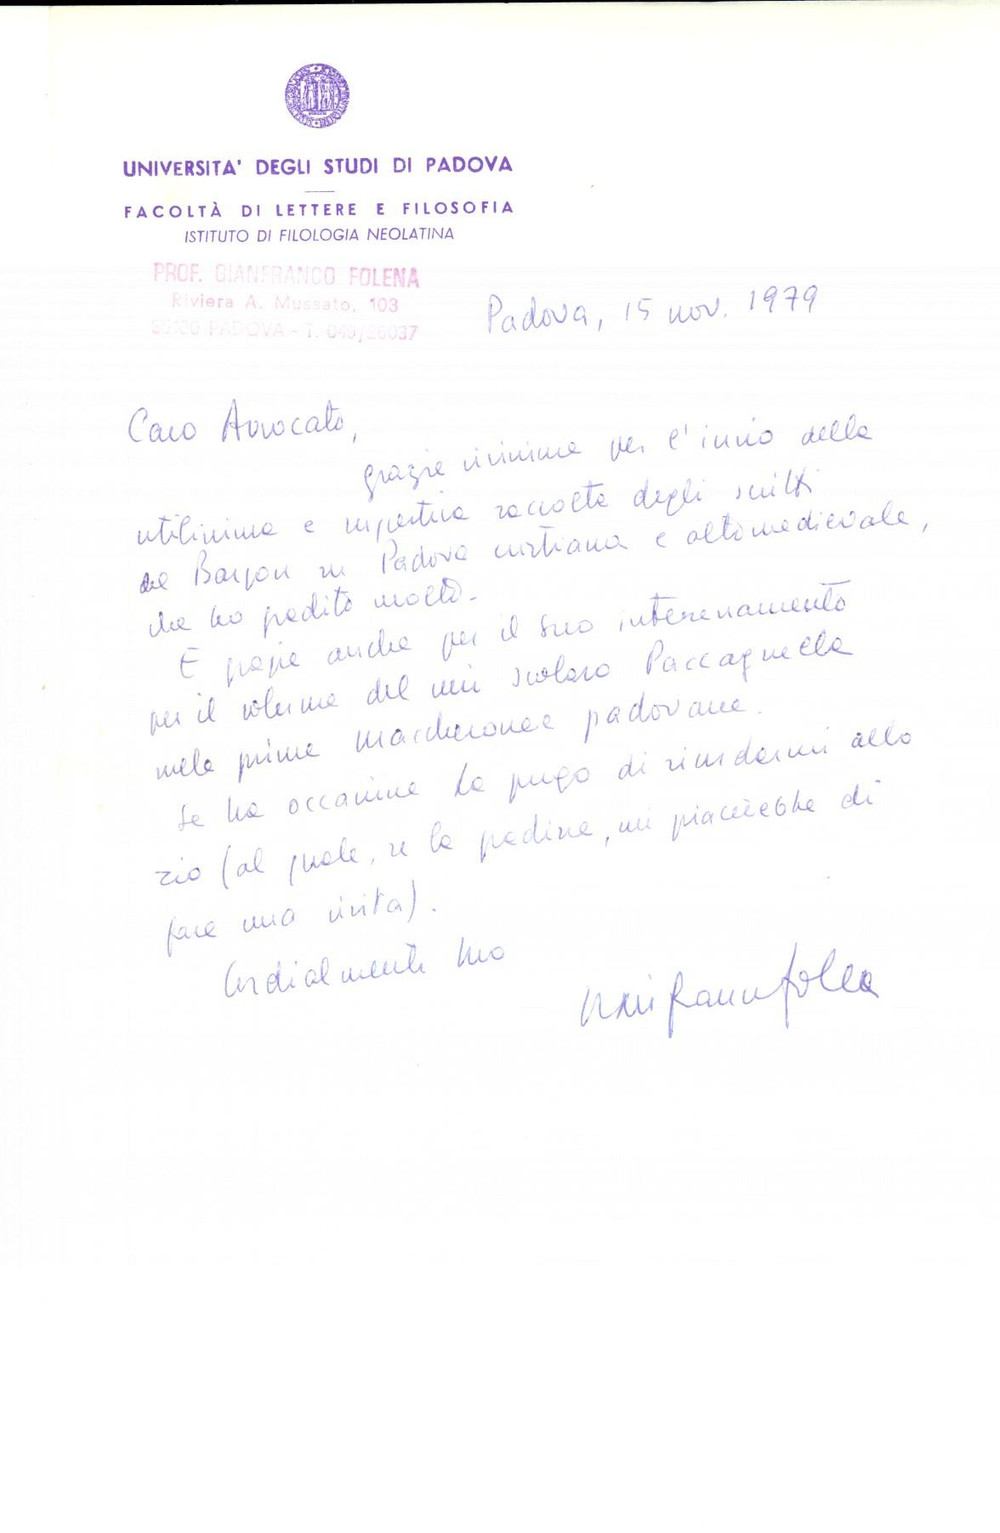 UNIVERSITA' DEGLI STUDI DI PADOVA
FACOLTÀ DI LETTERE E FILOSOFIA
ISTITUTO DI FILOLOGIA NEOLATINA
PROF. GIANFRANCO FOLENA
Riviera A. Mussato, 103
PADOVA - T. 049/26037
Padova, 15 nov. 1979
Caro Avvocato,
grazie vivissime per l'invio della
utilissima e raccolta degli scritti
del Barzon su Padova cristiana e altomedievale,
che ho gradito molto.
E grazie anche per il suo interessamento
per il volume del mio scolaro Paccagnella
sulle prime macaronee padovane.
Se ha occasione La prego di ricordarmi allo
zio (al quale, se lo gradisse, mi piacerebbe di
fare una visita).
Cordialmente Suo
Gianfranco Folena